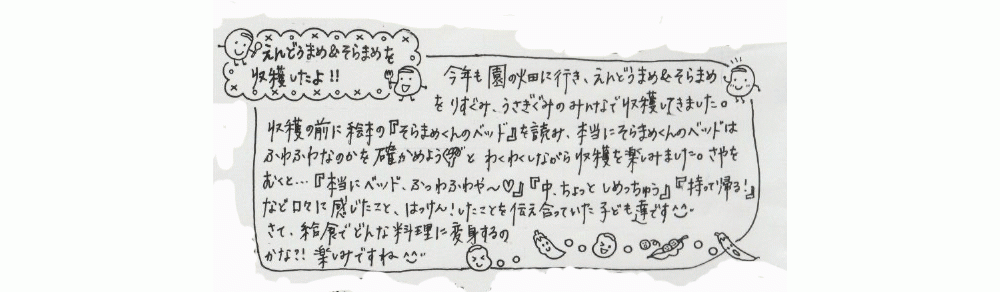 えんどうまめ&そらまめを
収穫したよ!!
今年も園の畑に行き、えんどうまめ&そらまめ
をりすぐみ、うさぎぐみのみんなで収穫してきました。
収穫の前に絵本の『そらまめくんのベッド』を読み、本当にそらまめくんのベッドは
ふわふわなのかを確かめようとわくわくしながら収穫を楽しみました。さやを
むくと…『本当にベッド、ふっわふわや〜♡』『中、ちょっとしめっちゅう』『持って帰る!』
など口々に感じたこと、はっけん!したことを伝え合っていた子ども達です^^
さて、給食でどんな料理に変身するの
かな?!楽しみですね^^